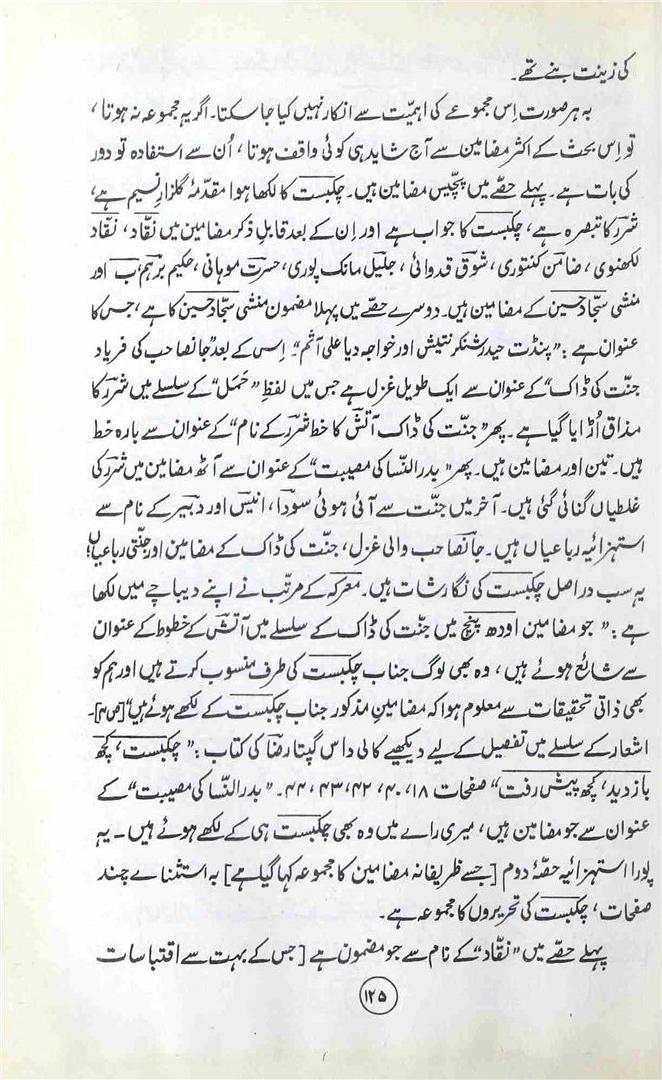 کی زینت بنے تھے۔
بہ ہر صورت اِس مجموعے کی اہمیّت سے انکار نہیں کیا جا سکتا۔ اگر یہ مجموعہ نہ ہوتا،
تو اِس بحث کے اکثر مضامین سے آج شاید ہی کوئی واقف ہوتا، اُن سے استفادہ تو دور
کی بات ہے۔ پہلے حصّے میں پچّیس مضامین ہیں۔ چکبست کا لکھا ہوا مقدّمۂ گلزارِ نسیم ہے،
شرؔر کا تبصرہ ہے، چکبست کا جواب ہے اور اِن کے بعد قابلِ ذکر مضامین میں نقّاد، نقّاد
لکھنوی، ضامنؔ کنتوری، شوؔق قدوائی، جلیؔل مانک پوری، حسرؔت موہانی، حکیم برہمؔ، ب اور
منشی سجّاد حسین کے مضامین ہیں۔ دوسرے حصّے میں پہلا مضمون منشی سجّاد حسین کا ہے، جس کا
عنوان ہے: "پنڈت حیدر شنکر نتیش اور خواجہ دیا علی آتم"۔ اِس کے بعد "جانصاحب کی فریاد
جنّت کی ڈاک" کے عنوان سے ایک طویل غزل ہے جس میں لفظِ "حَمَل" کے سلسلے میں شرؔر کا
مذاق اُڑایا گیا ہے۔ پھر "جنّت کی ڈاک آتشؔ کا خط شرؔر کے نام" کے عنوان سے بارہ خط
ہیں۔ تین اور مضامین ہیں۔ پھر "بدر النّسا کی مصیبت" کے عنوان سے آٹھ مضامین میں شرؔر کی
غلطیاں گنائی گئی ہیں۔ آخر میں جنّت سے آئی ہوئی سوؔدا، انیؔس اور دبیؔر کے نام سے
استہزائیہ رباعیاں ہیں۔ جانصاحب والی غزل، جنّت کی ڈاک کے مضامین اور جنّتی رباعیاں؛
یہ سب در اصل چکبست کی نگارشات ہیں۔ معرکہ کے مرتّب نے اپنے دیباچے میں لکھا
ہے: "جو مضامین اودھ پنچ میں جنّت کی ڈاک کے سلسلے میں آتشؔ کے خطوط کے عنوان
سے شائع ہوئے ہیں، وہ بھی لوگ جناب چکبست کی طرف منسوب کرتے ہیں اور ہم کو
بھی ذاتی تحقیقات سے معلوم ہوا کہ مضامینِ مذکور جناب چکبست کے لکھے ہوئے ہیں" [ص۲]۔
اشعار کے سلسلے میں تفصیل کے لیے دیکھیے کالی داس گپتا رضؔا کی کتاب: "چکبست، کچھ
باز دید، کچھ پیش رفت" صفحات ۱۸، ۴۰، ۴۲، ۴۳، ۴۴۔ "بدر النّسا کی مصیبت" کے
عنوان سے جو مضامین ہیں، میری راے میں وہ بھی چکبست ہی کے لکھے ہوئے ہیں۔ یہ
پورا استہزائیہ حصّۂ دوم [جسے ظریفانہ مضامین کا مجموعہ کہا گیا ہے] بہ استثناے چند
صفحات، چکبست کی تحریروں کا مجموعہ ہے۔
پہلے حصّے میں "نقّاد" کے نام سے جو مضمون ہے [جس کے بہت سے اقتباسات
۱۲۵